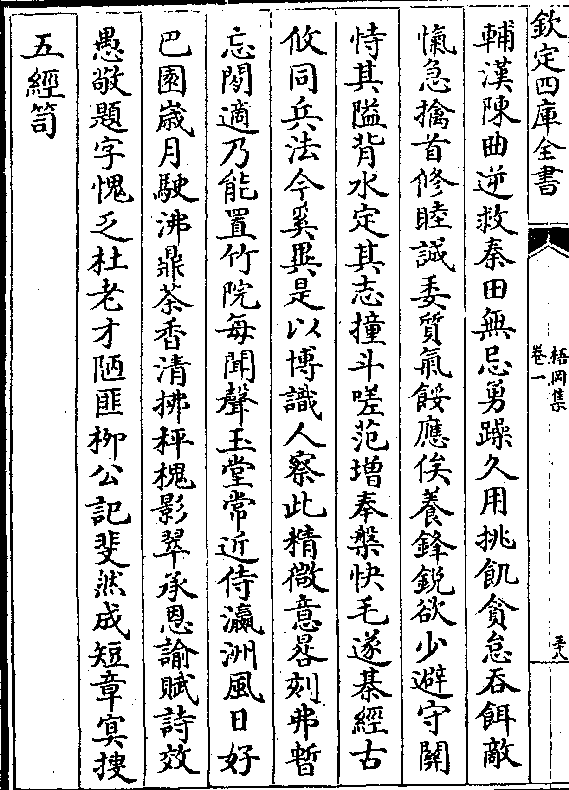 欽定四庫全書
梧岡集
卷一
輔漢陳曲逆救秦田無忌勇躁久用挑飢貪怠吞餌敵
愾急擒首修睦誠委質氣餒應俟養鋒銳欲少避守關
恃其隘背水定其志撞斗嗟范增奉槃快毛遂棊經古
攸同兵法今奚異是以博識人察此精微意晷刻弗暫
忘閱適乃能置竹院每聞聲玉堂常近侍瀛洲風日好
巴園嵗月駛沸鼎茶香清拂枰槐影翠承恩諭賦詩效
愚敬題字愧乏杜老才陋匪柳公記斐然成短章冥搜
五經笥